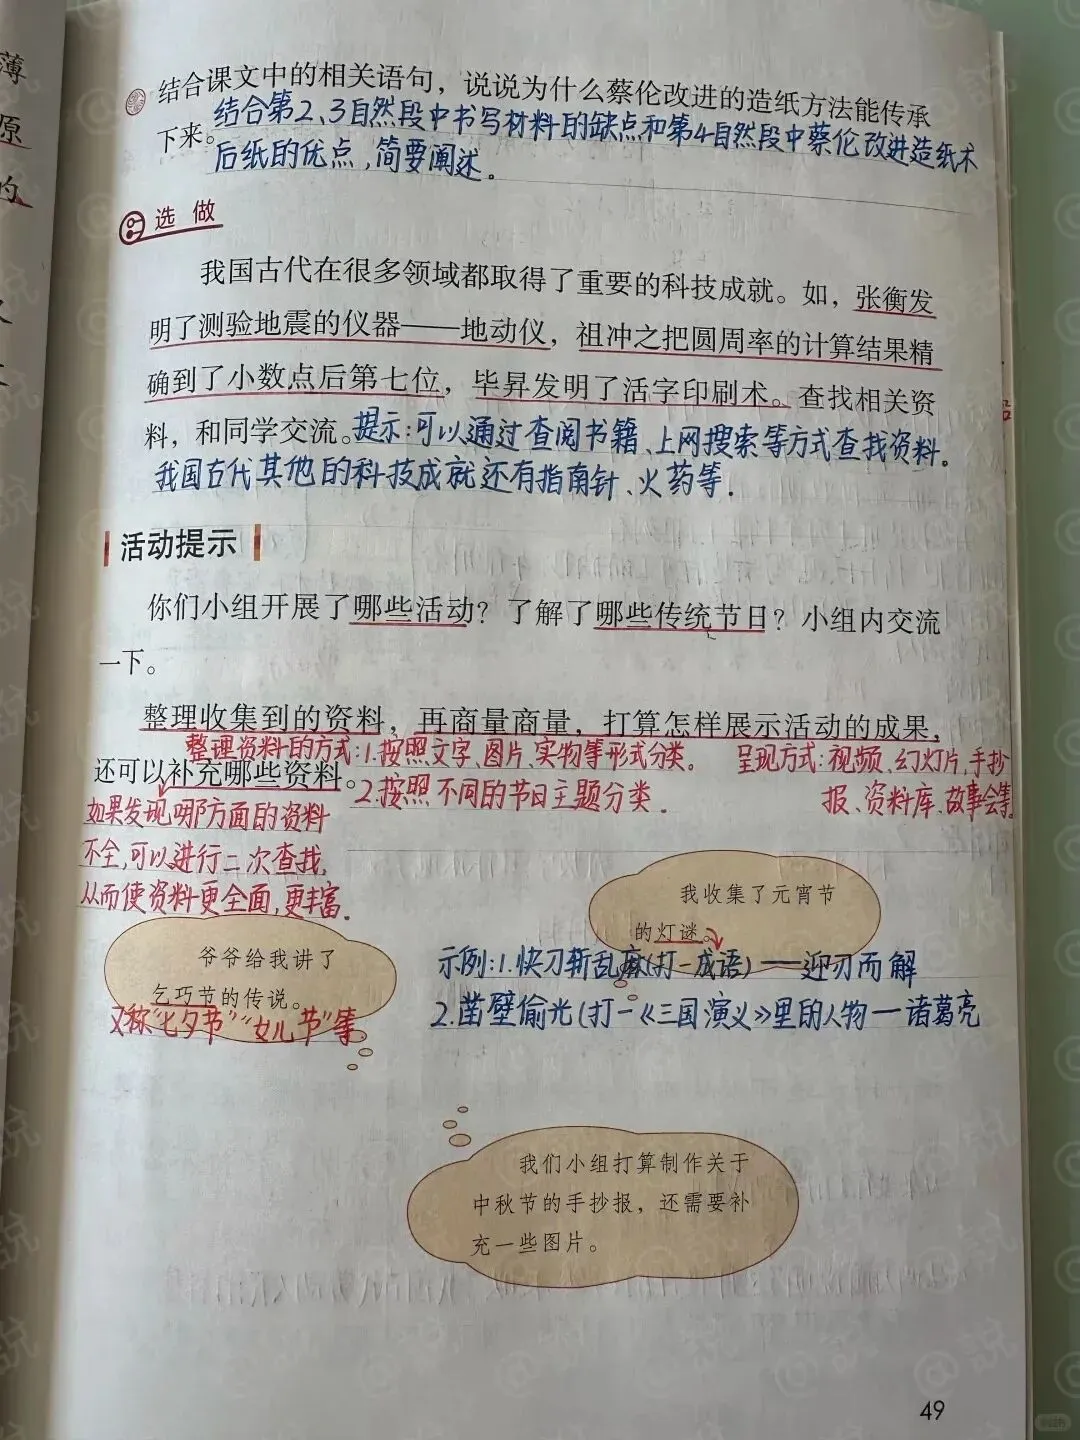 薄
原
的
结合课文中的相关语句，说说为什么蔡伦改进的造纸方法能传承
下来。
结合第2、3自然段中书写材料的缺点和第4自然段中蔡伦改进造纸术
后纸的优点，简要阐述。
选做
我国古代在很多领域都取得了重要的科技成就。如，张衡发
明了测验地震的仪器——地动仪，祖冲之把圆周率的计算结果精
确到了小数点后第七位，毕昇发明了活字印刷术。查找相关资
料，和同学交流。提示：可以通过查阅书籍、上网搜索等方式查找资料。
我国古代其他的科技成就还有指南针、火药等.
活动提示
你们小组开展了哪些活动？了解了哪些传统节日？小组内交流
一下。
整理收集到的资料，再商量商量，打算怎样展示活动的成果，
整理资料的方式：1.按照文字、图片、实物等形式分类。 呈现方式：视频、幻灯片、手抄
还可以补充哪些资料。2.按照不同的节日主题分类. 报、资料库、故事会等。
如果发现哪方面的资料
不全，可以进行二次查找，
从而使资料更全面，更丰富.
我收集了元宵节
的灯谜。
爷爷给我讲了
乞巧节的传说。
又称"七夕节""女儿节"等
示例：1.快刀斩乱麻(打一成语)——迎刃而解
2.凿壁偷光(打一《三国演义》里的人物—诸葛亮
我们小组打算制作关于
中秋节的手抄报，还需要补
充一些图片。
49